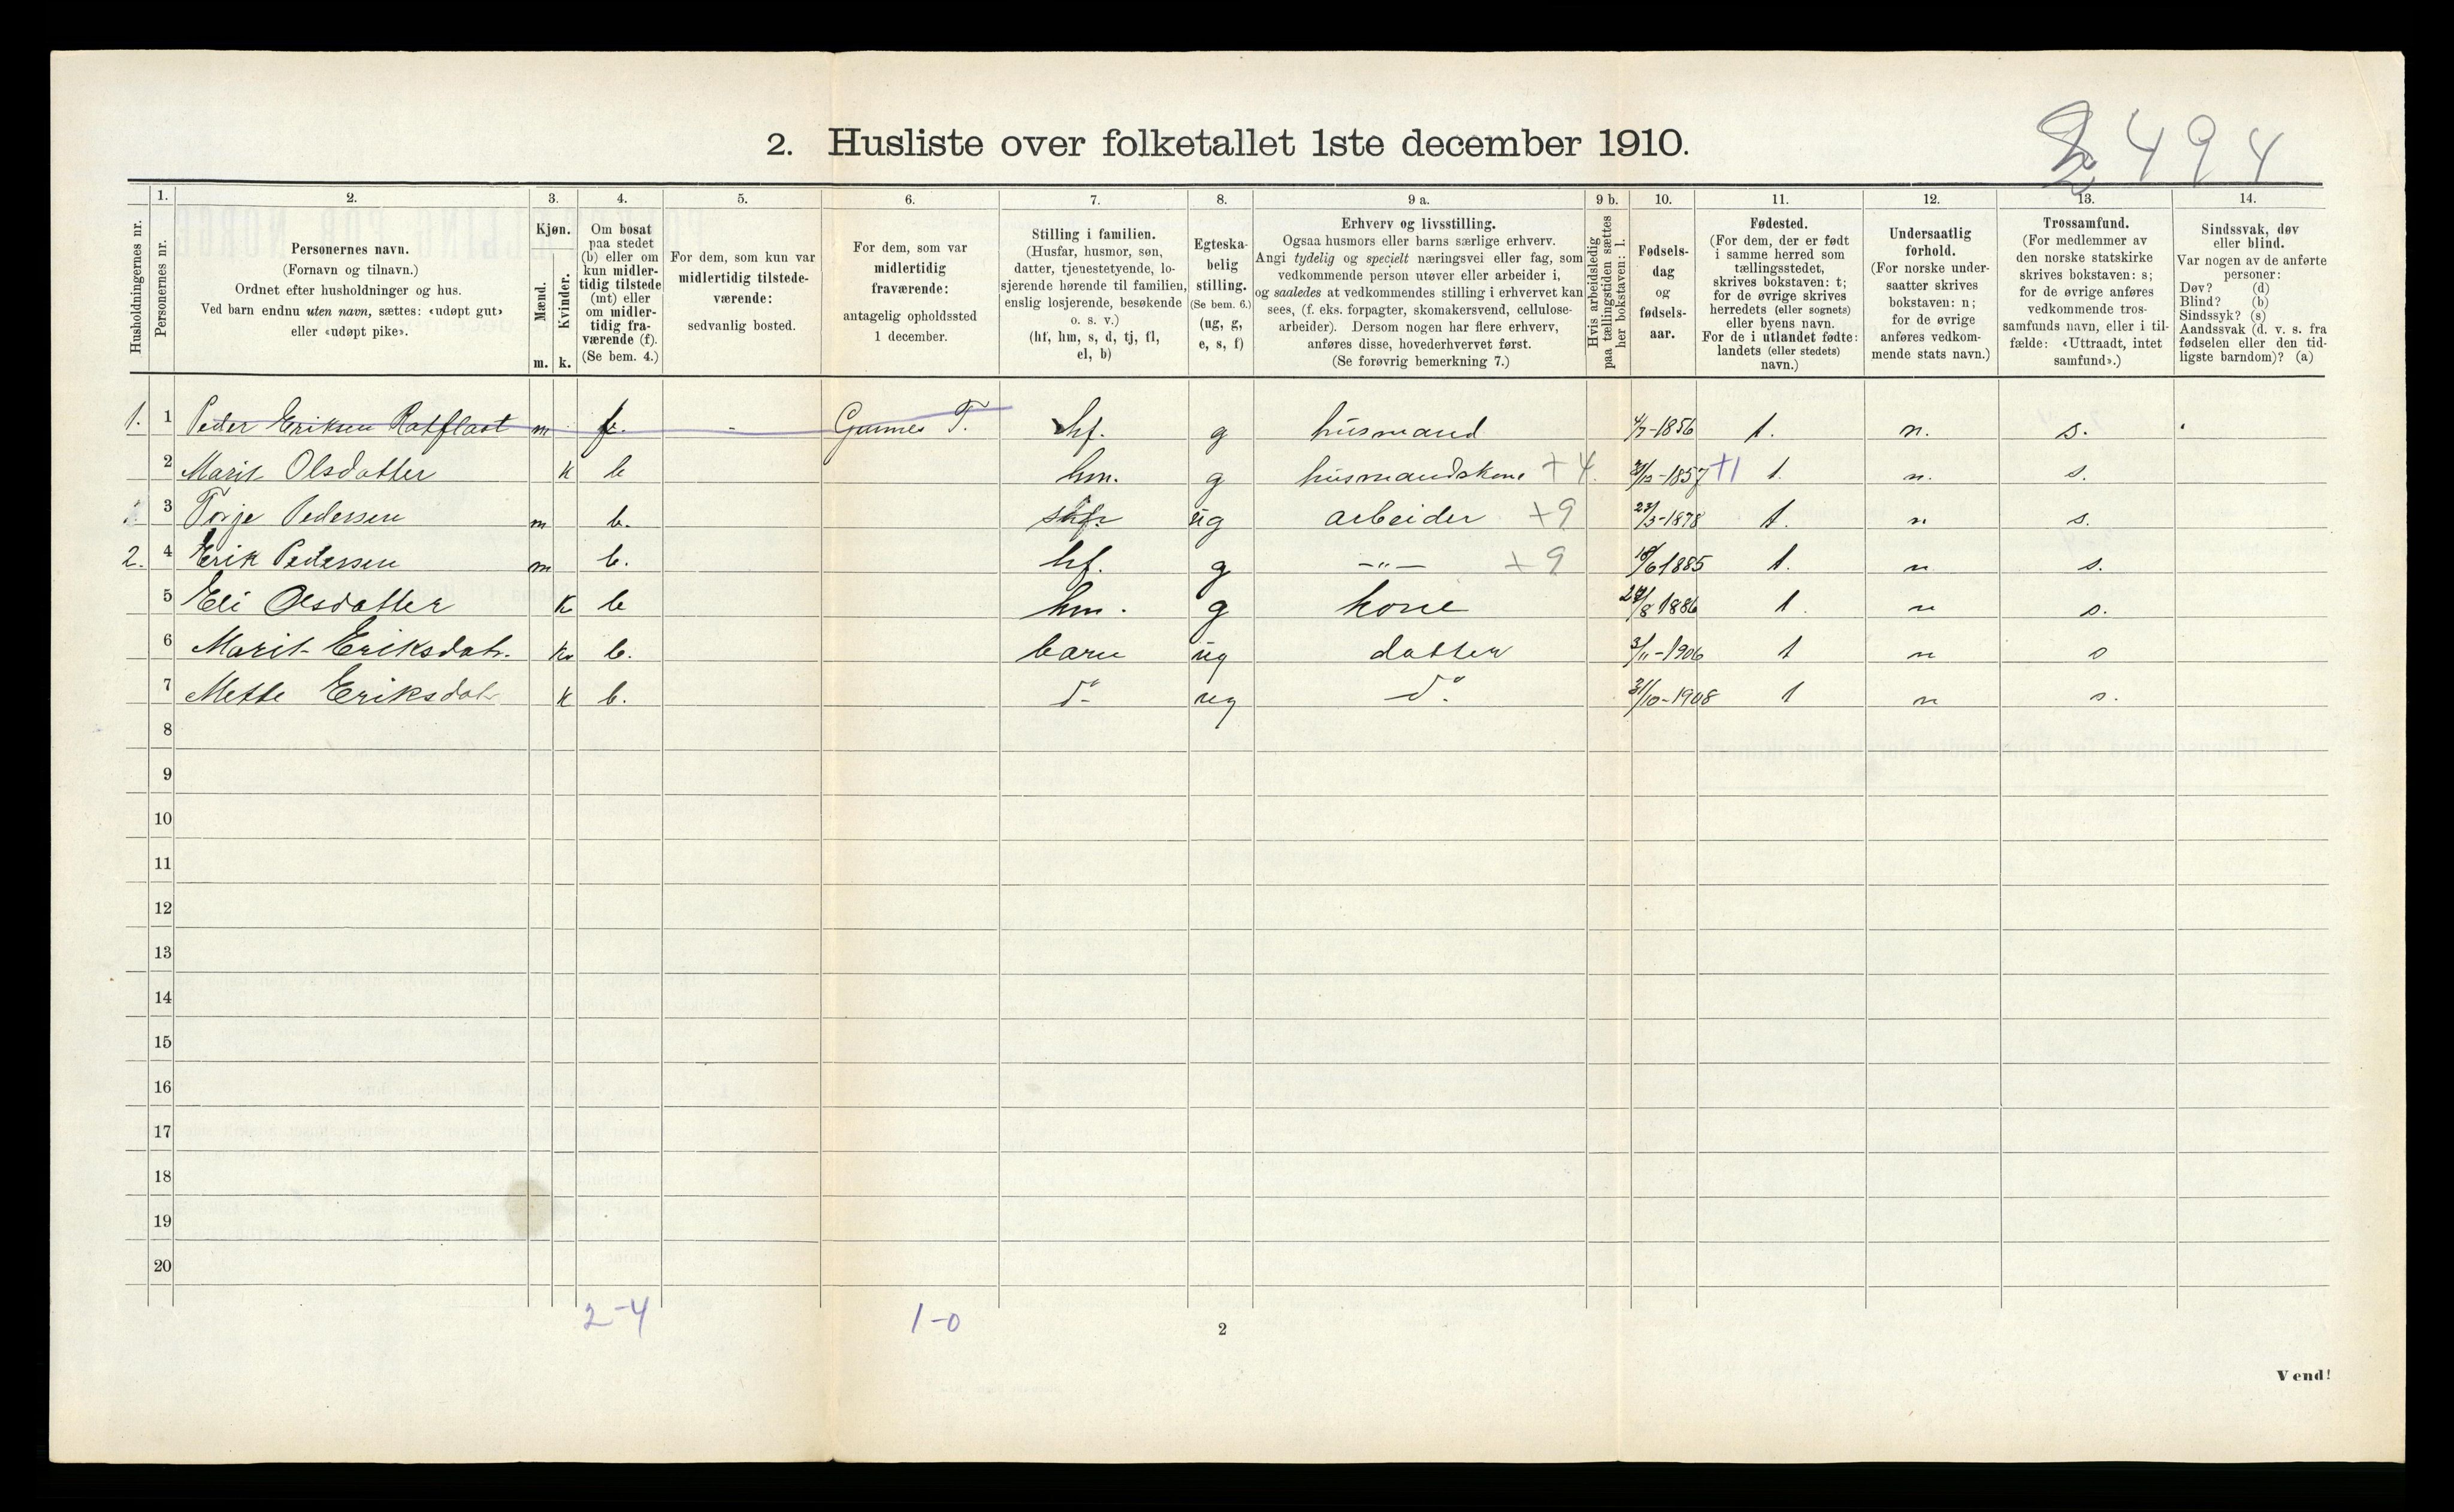 2. Husliste over folketallet 1ste december 1910.
494
Husholdningernes nr.
1.
Personernes nr.
2.
Personernes navn.
(Fornavn og tilnavn.)
Ordnet efter husholdninger og hus.
Ved barn endnu uten navn, sættes: «udøpt gut»
eller «udøpt pike».
3.
Kjøn.
Mænd.
Kvinder.
m. k.
4.
Om bosat
paa stedet
(b) eller om
kun midler-
tidig tilstede
(mt) eller
om midler-
tidig fra-
værende (f).
(Se bem. 4.)
5.
For dem, som kun var
midlertidig tilstede-
værende:
sedvanlig bosted.
6.
For dem, som var
midlertidig
fraværende:
antagelig opholdssted
1 december.
7.
Stilling i familien.
(Husfar, husmor, søn,
datter, tjenestetyende, lo-
sjerende hørende til familien,
enslig losjerende, besøkende
o. s. v.)
(hf, hm, s, d, tj, fl,
el, b)
8.
Egteska-
belig
stilling.
(Se bem. 6.)
(ug, g,
e, s, f)
9 a.
Erhverv og livsstilling.
Ogsaa husmors eller barns særlige erhverv.
Angi tydelig og specielt næringsvei eller fag, som
vedkommende person utøver eller arbeider i,
og saaledes at vedkommendes stilling i erhvervet kan
sees, (f. eks. forpagter, skomakersvend, cellulose-
arbeider). Dersom nogen har flere erhverv,
anføres disse, hovederhvervet først.
(Se forøvrig bemerkning 7.)
9 b.
Hvis arbeidsledig
paa tællingstiden sættes
her bokstaven: l.
10.
Fødsels-
dag
og
fødsels-
aar.
11.
Fødested.
(For dem, der er født
i samme herred som
tællingsstedet,
skrives bokstaven: t;
for de øvrige skrives
herredets (eller sognets)
eller byens navn.
For de i utlandet fødte:
landets (eller stedets)
navn.)
12.
Undersaatlig
forhold.
(For norske under-
saatter skrives
bokstaven: n;
for de øvrige
anføres vedkom-
mende stats navn.)
13.
Trossamfund.
(For medlemmer av
den norske statskirke
skrives bokstaven: s;
for de øvrige anføres
vedkommende tros-
samfunds navn, eller i til-
fælde: «Uttraadt, intet
samfund».)
14.
Sindssvak, døv
eller blind.
Var nogen av de anførte
personer:
Døv? (d)
Blind? (b)
Sindssyk? (s)
Aandssvak (d. v. s. fra
fødselen eller den tid-
ligste barndom)? (a)
1. 1 Peder Eriksen m f. - T. hf. g husmand 4/7-1856 t. n. s.
2 Marit Olsdatter k b hm. g husmandskone +4 -1857 +1 t. n. s.
3 Torje Pedersen m b. ug arbeider +9 1878 t. n s.
2. 4 Erik Pedersen m b. hf. g —"— +9 /6 1885 t. n s.
5 Eli Olsdatter k b hm. g kone /8 1886 t. n s.
6 Marit Eriksdatr. k b. barn ug datter 3/11-1906 t n s
7 Mette Eriksdatr k b. do ug do. 31/10-1908 t n s.
8
9
10
11
12
13
14
15
16
17
18
19
20
2-4 1-0
2
Vend!